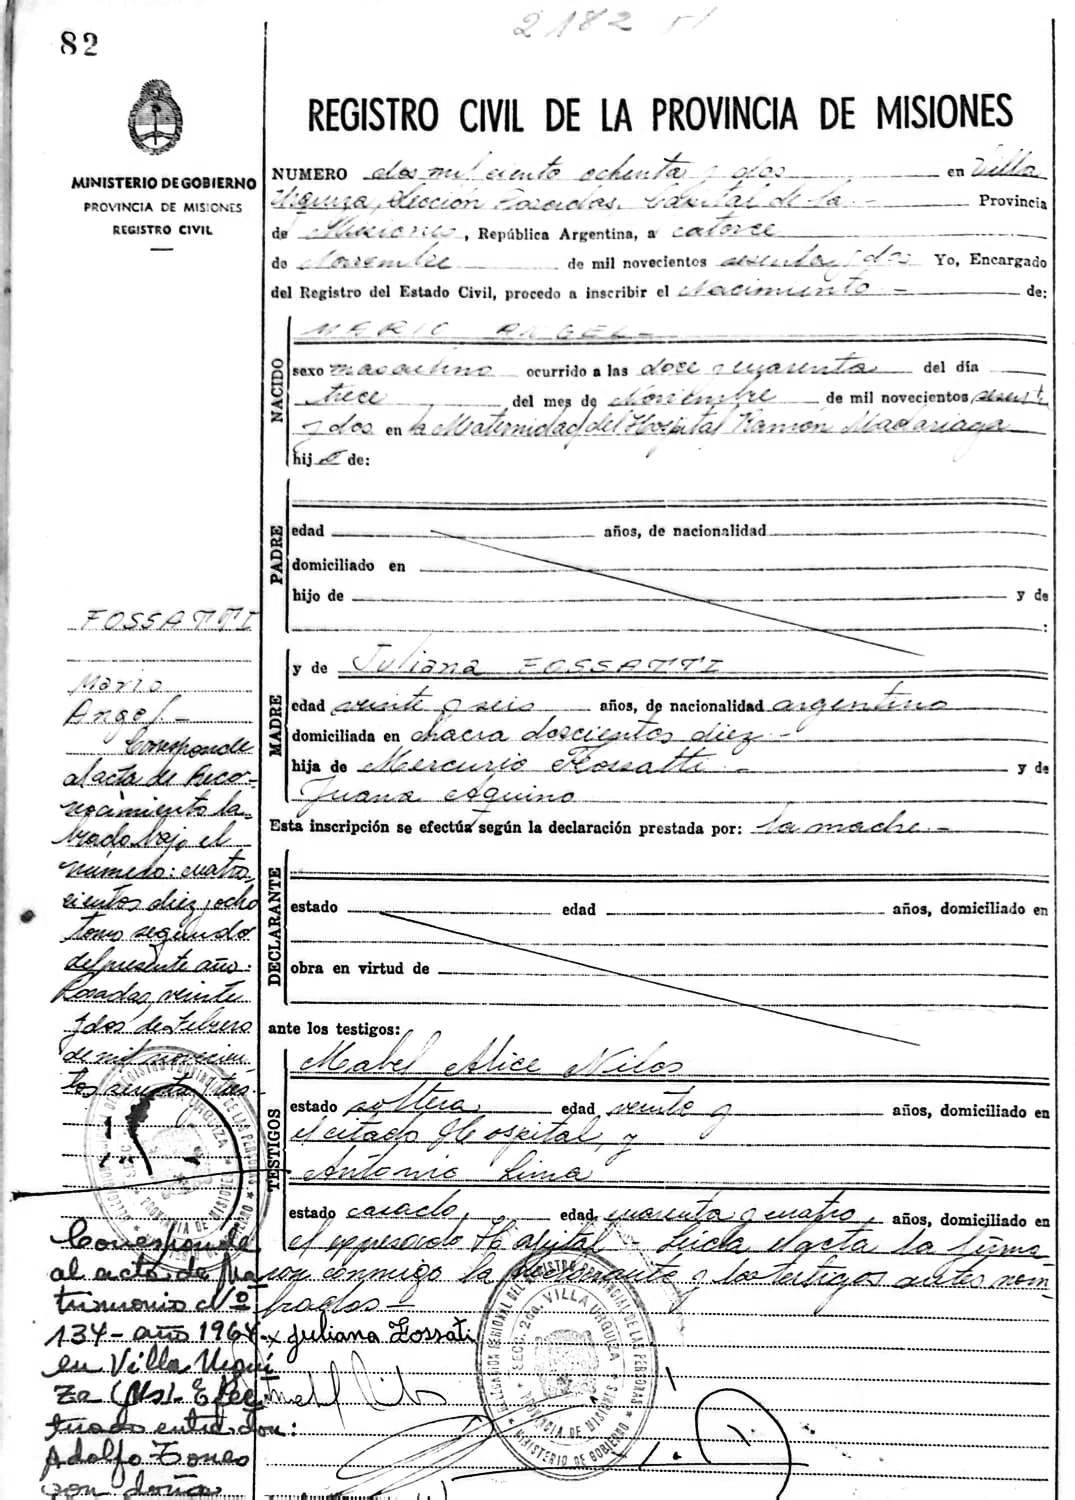 2182
82
REGISTRO CIVIL DE LA PROVINCIA DE MISIONES
MINISTERIO DE GOBIERNO
PROVINCIA DE MISIONES
REGISTRO CIVIL
NUMERO dos mil ciento ochenta y dos en Villa
Urquiza, Sección Posadas, Capital de la Provincia
de Misiones, República Argentina, a catorce
de Noviembre de mil novecientos sesenta y dos Yo, Encargado
del Registro del Estado Civil, procedo a inscribir el Nacimiento de:
NACIDO
MARIO ANGEL
sexo masculino ocurrido a las doce y cuarenta del día
trece del mes de Noviembre de mil novecientos sesenta
y dos en la Maternidad del Hospital Ramón Madariaga
hijo de:
PADRE
edad años, de nacionalidad
domiciliado en
hijo de y de
:
MADRE
y de Juliana FOSSATTI
edad veinte y seis años, de nacionalidad argentina
domiciliada en chacra doscientos diez
hija de Mercurio Fossatti y de
Juana Aquino
Esta inscripción se efectúa según la declaración prestada por: la madre.
DECLARANTE
estado edad años, domiciliado en
obra en virtud de
ante los testigos:
TESTIGOS
Mabel Alice
estado soltera edad veinte y años, domiciliado en
el citado Hospital, y
Antonio Lima
estado casado, edad cuarenta y cuatro, años, domiciliado en
el expresado Hospital - Leída el acta la firma
con conmigo la declarante y los testigos antes nom-
brados -
x Juliana Fossati
FOSSATTI
Mario
Angel. -
Corresponde
al acta de Reco-
nocimiento la-
brado bajo el
número: cuatro
cientos diez y ocho
tomo segundo
del presente año:
Posadas, veinte
y dos de Febrero
de mil novecien
tos sesenta y tres.-
Corresponde
al acta de Ma
trimonio Nº
134 - año 1964
en Villa Urqui
za (Ms). Efec
tuado entre don:
Adolfo
con doña
DELEGACION REGIONAL DEL REGISTRO PROVINCIAL DE LAS PERSONAS
SECC. 2da. VILLA URQUIZA
PROVINCIA DE MISIONES
MINISTERIO DE GOBIERNO